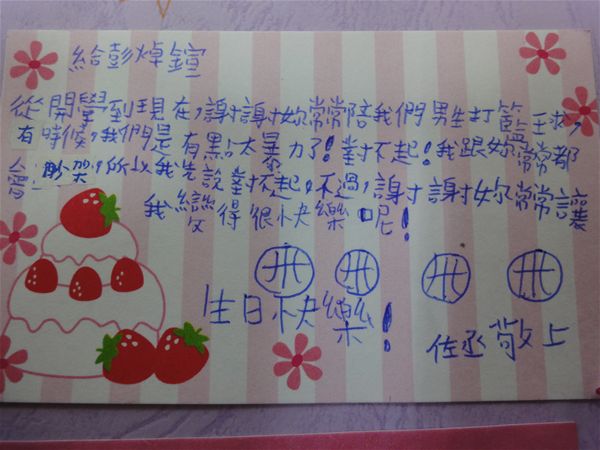 給彭焯鍹
從開學到現在,謝謝妳常常陪我們男生打籃球,
有時候,我們是有點太暴力了!對不起!我跟妳常常都
會吵架,所以我先說對不起,不過,謝謝妳常常讓
我變得很快樂呢!
生日快樂!
佐丞敬上